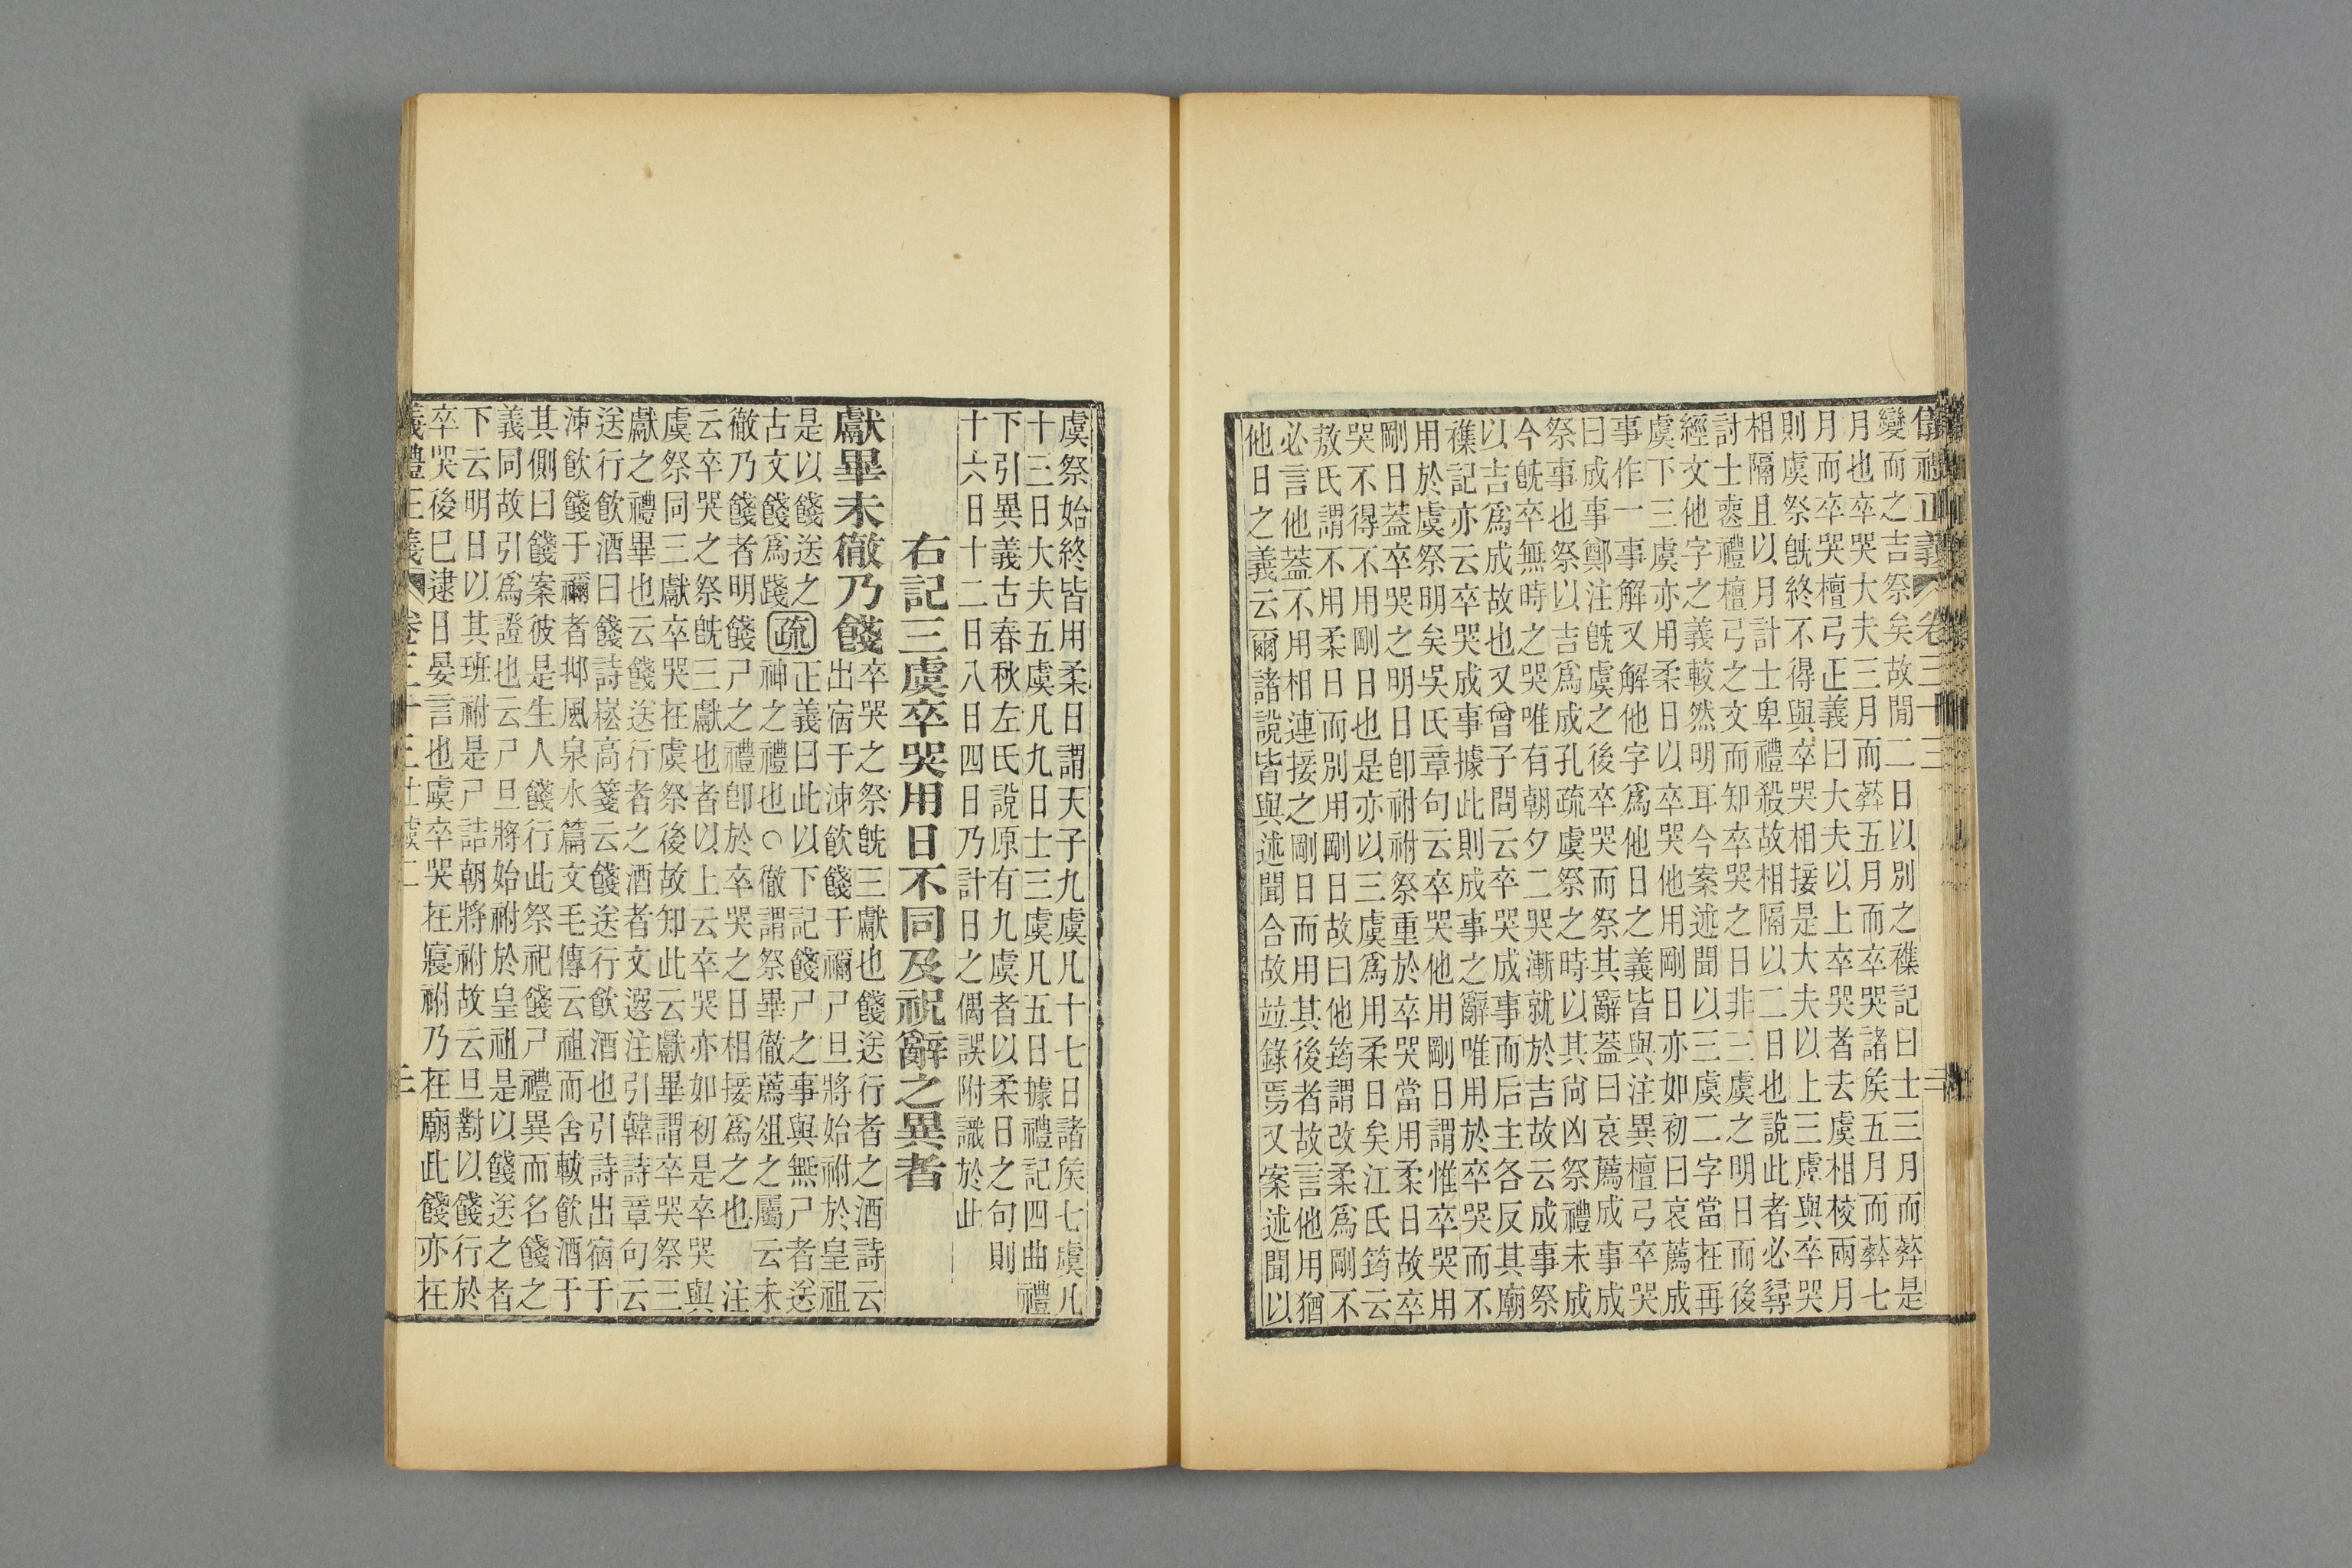 儀禮正義 卷三十三 二
變而之吉祭矣故閒二日以別之襍記曰士三月而葬是
月也卒哭大夫三月而葬五月而卒哭諸侯五月而葬七
月而卒哭檀弓正義曰大夫以上卒哭者去虞相校兩月
則虞祭旣終不得與卒哭相接是大夫以上三虞與卒哭
相隔且以月計士卑禮殺故相隔以二日也說此者必尋
討士喪禮檀弓之文而知卒哭之日非三虞之明日而後
經文他字之義較然明耳今案述聞以三虞二字當在再
虞下三虞亦用柔日以卒哭他用剛日亦如初曰哀薦成
事作一事解又解他字爲他日之義皆與注異檀弓卒哭
曰成事鄭注旣虞之後卒哭而祭其辭蓋曰哀薦成事成
祭事也祭以吉爲成孔疏虞祭之時以其尙凶祭禮未成
今旣卒無時之哭唯有朝夕二哭漸就於吉故云成事祭
以吉爲成故也又曾子問云卒哭成事而后主各反其廟
襍記亦云卒哭成事據此則成事之辭唯用於卒哭而不
用於虞祭明矣吳氏章句云卒哭他用剛日謂惟卒哭用
剛日蓋卒哭之明日卽祔祔祭重於卒哭當用柔日故卒
哭不得不用剛日也是亦以三虞爲用柔日矣江氏筠云
敖氏謂不用柔日而別用剛日故曰他筠謂改柔爲剛不
必言他蓋不用相連接之剛日而用其後者故言他用猶
他日之義云爾諸說皆與述聞合故並錄焉又案述聞以
虞祭始終皆用柔日謂天子九虞凡十七日諸侯七虞凡
十三日大夫五虞凡九日士三虞凡五日據禮記四曲禮
下引異義古春秋左氏說原有九虞者以柔日之句則
十六日十二日八日四日乃計日之偶誤附識於此
右記三虞卒哭用日不同及祝辭之異者
獻畢未徹乃餞
卒哭之祭旣三獻也餞送行者之酒詩云
出宿于泲飮餞于禰尸旦將始祔於皇祖
是以餞送之
古文餞爲踐
疏
正義曰此以下記餞尸之事與無尸者送
神之禮也○徹謂祭畢徹薦俎之屬云未
徹乃餞者明餞尸之禮卽於卒哭之日相接爲之也 注
云卒哭之祭旣三獻也者以上云卒哭亦如初是卒哭與
虞祭同三獻卒哭在虞祭後故知此云獻畢謂卒哭祭三
獻之禮畢也云餞送行者之酒者文選注引韓詩章句云
送行飮酒曰餞詩崧高箋云餞送行飮酒也引詩出宿于
泲飮餞于禰者邶風泉水篇文毛傳云祖而舍軷飮酒于
其側曰餞案彼是生人餞行此祭祀餞尸禮異而名餞之
義同故引爲證也云尸旦將始祔於皇祖是以餞送之者
下云明日以其班祔是尸詰朝將祔故云旦對以餞行於
卒哭後巳逮日晏言也虞卒哭在寢祔乃在廟此餞亦在
義禮正義 卷三十三士虞二